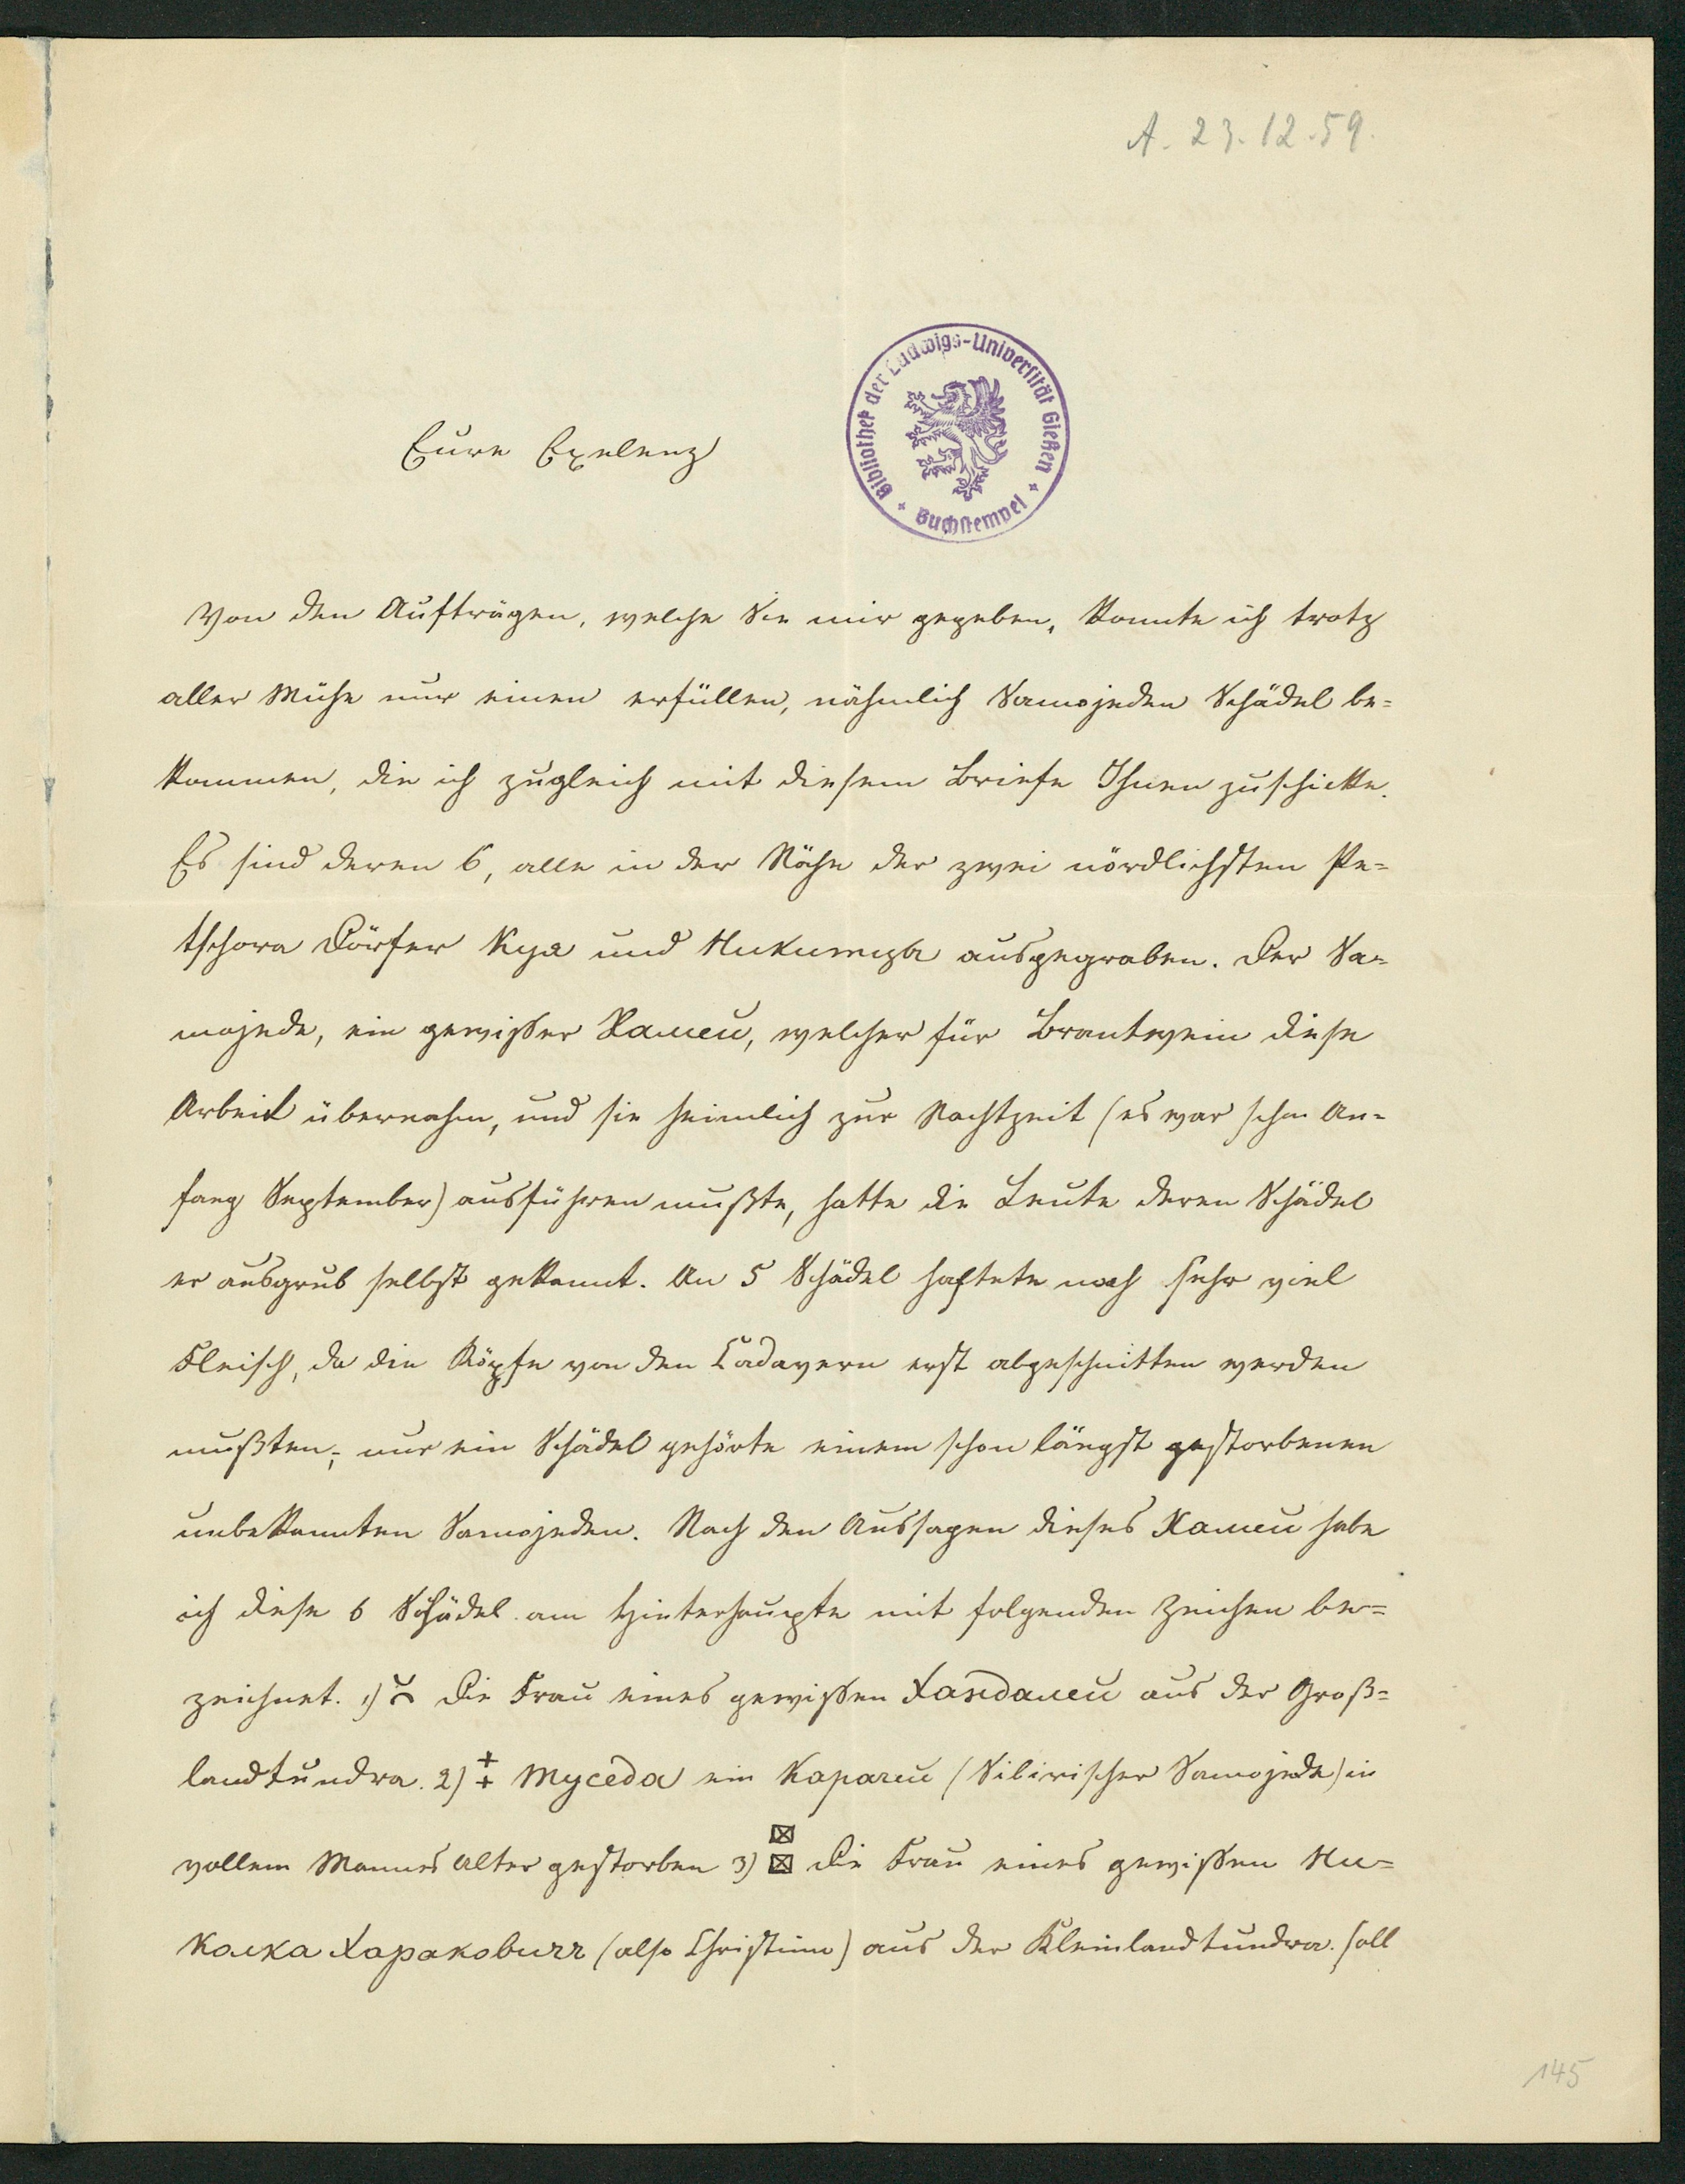 A. 23.12.59.
Bibliothek der Ludwigs-Universität Gießen
Buchstempel
Eure Exelenz
Von den Aufträgen, welche Sie mir gegeben, konnte ich trotz
aller Mühe nur einen erfüllen, nähmlich Samojeden Schädel be=
kommen, die ich zugleich mit diesem Briefe Ihnen zuschikke.
Es sind deren 6, alle in der Nähe der zwei nördlichsten Pe=
tschora Dörfer Куя und Никитцы ausgegraben. Der Sa=
mojede, ein gewißer Хамеи, welcher für Brantwein diese
Arbeit übernahm, und sie heimlich zur Nachtzeit (es war schon An=
fang September) ausführen mußte, hatte die Leute deren Schädel
er ausgrub selbst gekannt. An 5 Schädel haftete noch sehr viel
Fleisch, da die Köpfe von den Cadavern erst abgeschnitten werden
mußten; nur ein Schädel gehörte einem schon längst gestorbenen
unbekannten Samojeden. Nach den Aussagen dieses Хамеи habe
ich diese 6 Schädel am Hinterhaupte mit folgenden Zeichen be=
zeichnet. 1) Die Frau eines gewißen aus der Groß=
landtundra. 2) ++ Муседа ein Карачеи (Sibirischer Samojede) in
vollem Mannes Alter gestorben 3) ⊠⊠ Die Frau eines gewißen Ни=
колка Хараковичъ (also Christinn) aus der Kleinlandtundra. soll
145